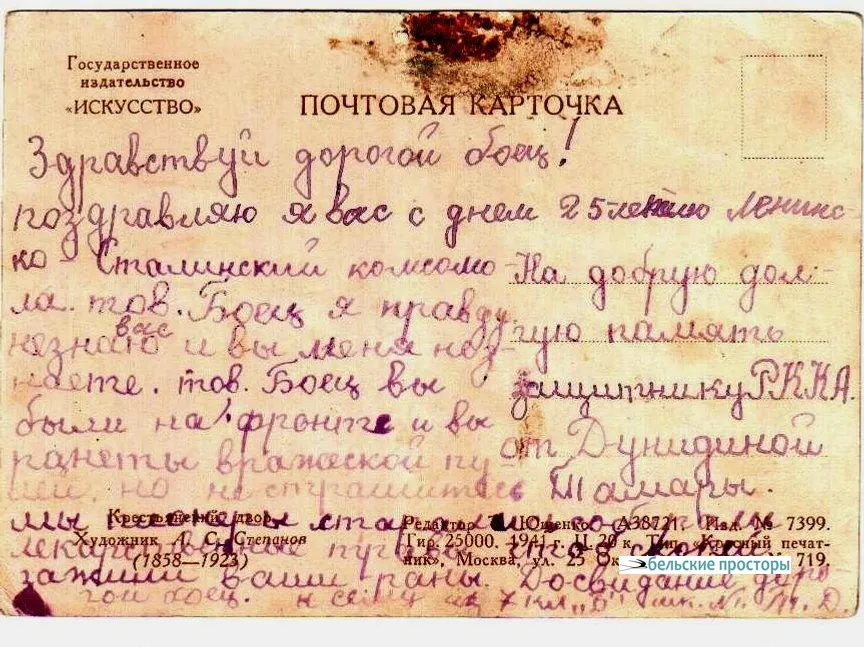 Государственное
издательство
«ИСКУССТВО»
ПОЧТОВАЯ КАРТОЧКА
Здравствуй дорогой боец!
поздравляю я вас с днем 25-летию Ленинс-
ко-Сталинский комсомо-
ла. тов. Боец я правду
незнаю вас и вы меня нез-
наете. тов. Боец вы
были на фронте и вы
ранеты вражеской пу-
лей, но не страшитесь
мы
лекарственные травы
зажили ваши раны. Досвидание доро
гой боец. 7 кл. „Б"
На добрую дол-
гую память
защитнику РККА.
от Дунидиной
Тамары.
Крестьянский двор
Художник А. С. Степанов
(1858—1923)
Редактор Ющенко А38721. Изд. № 7399.
Тир. 25000. 1941 г. Ц. 20 к. Тип. «Красный печат-
ник», Москва, ул. 25 Ок 719.
бельские просторы